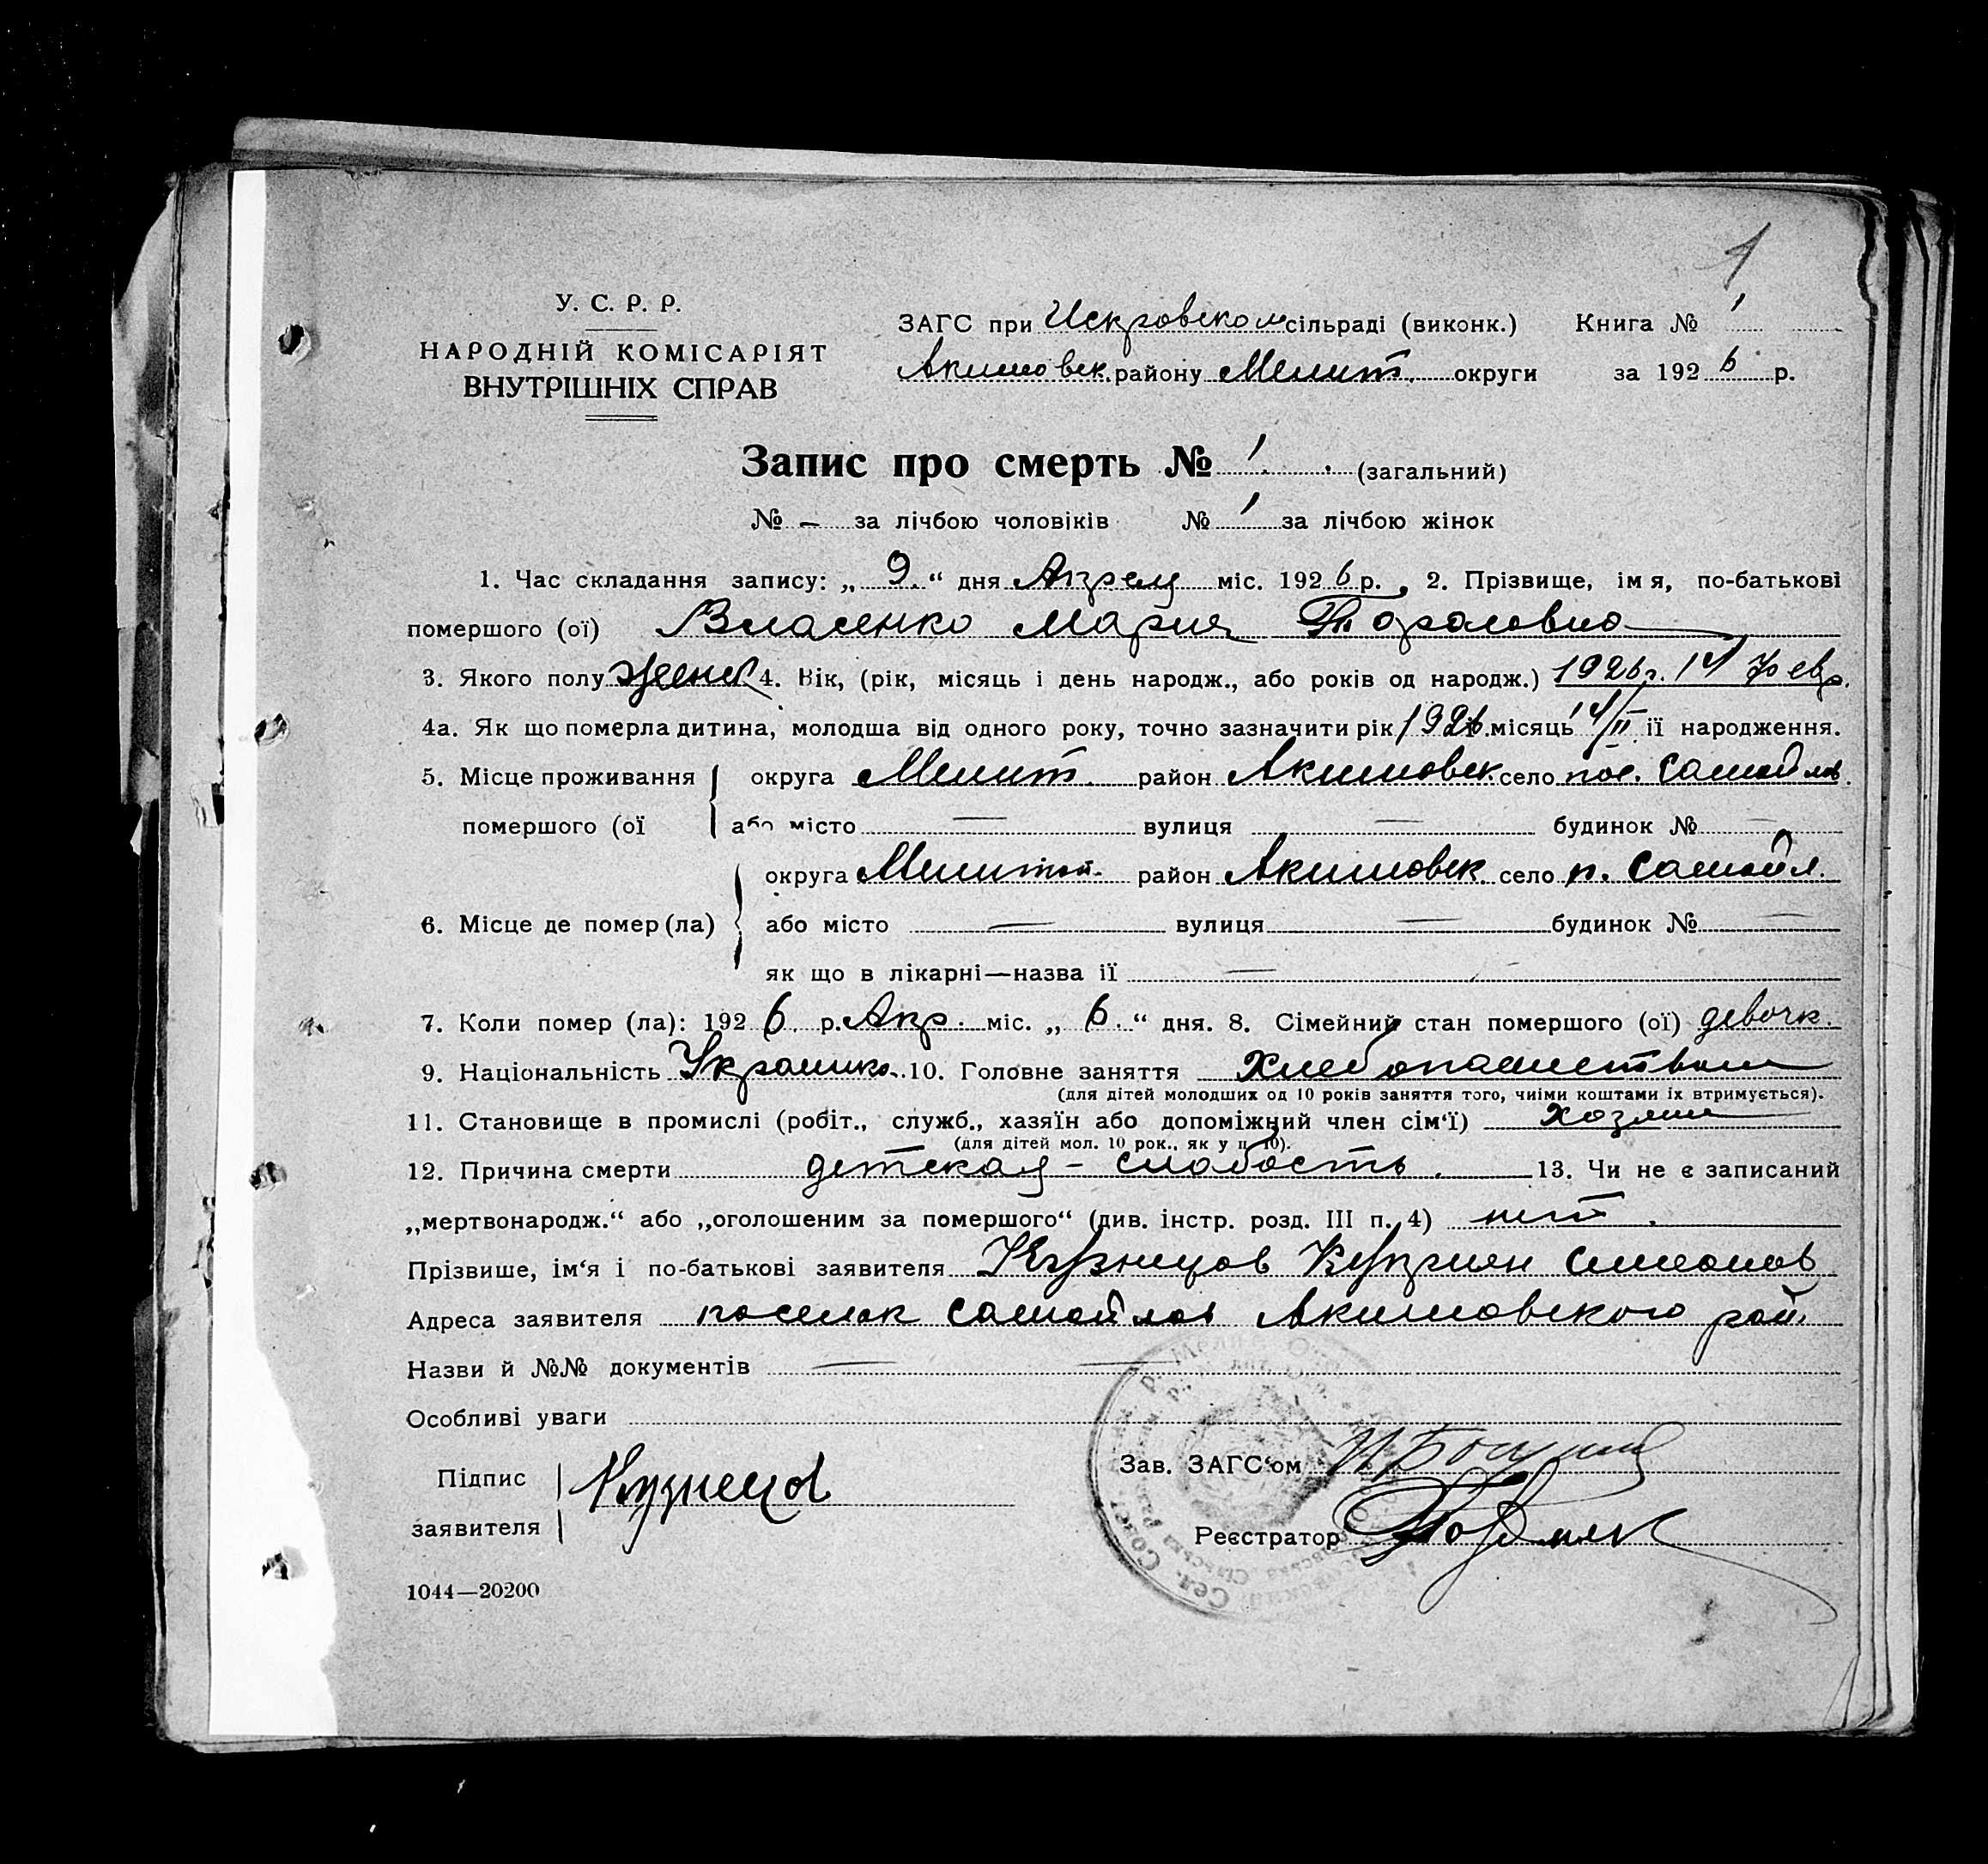 1
У. С. Р. Р.
НАРОДНІЙ КОМІСАРІЯТ
ВНУТРІШНІХ СПРАВ
ЗАГС при Искровском сільраді (виконк.) Книга № 1
Акимовск. району Мелит. округи за 1926 р.
Запис про смерть № 1 (загальний)
№ – за лічбою чоловіків № 1 за лічбою жінок
1. Час складання запису: „ 9 “ дня Апреля міс. 1926 р. 2. Прізвище, імя, по-батькові
помершого (ої) Власенко Мария
3. Якого полу женс 4. Вік, (рік, місяць і день народж., або років од народж.) 1926 г. 14 февр.
4а. Як що померла дитина, молодша від одного року, точно зазначити рік 1926 місяць 14/II її народження.
5. Місце проживання округа Мелит. район Акимовск. село пос. Самойлов.
помершого (ої або місто — вулиця — будинок № —
округа Мелитоп. район Акимовск. село п. Самойл.
6. Місце де помер (ла) або місто — вулиця — будинок № —
як що в лікарні—назва її —
7. Коли помер (ла): 1926 р. Апр. міс. „ 6. “ дня. 8. Сімейний стан помершого (ої) девочк.
9. Національність Украинка 10. Головне заняття Хлебопашеством
(для дітей молодших од 10 років заняття того, чиїми коштами їх втримується).
11. Становище в промислі (робіт., служб., хазяїн або допоміжний член сім‘ї) хозяин
(для дітей мол. 10 рок., як у п. 10).
12. Причина смерти детская – слабость. 13. Чи не є записаний
„мертвонародж.“ або „оголошеним за помершого“ (див. інстр. розд. III п. 4) нет.
Прізвише, ім‘я і по-батькові заявителя Кузнецов Куприян Симонов
Адреса заявителя поселок Самойлов Акимовского рай.
Назви й №№ документів — —
Особливі уваги
Підпис Кузнецов
заявителя
Зав. ЗАГС‘ом
Реєстратор
1044—20200